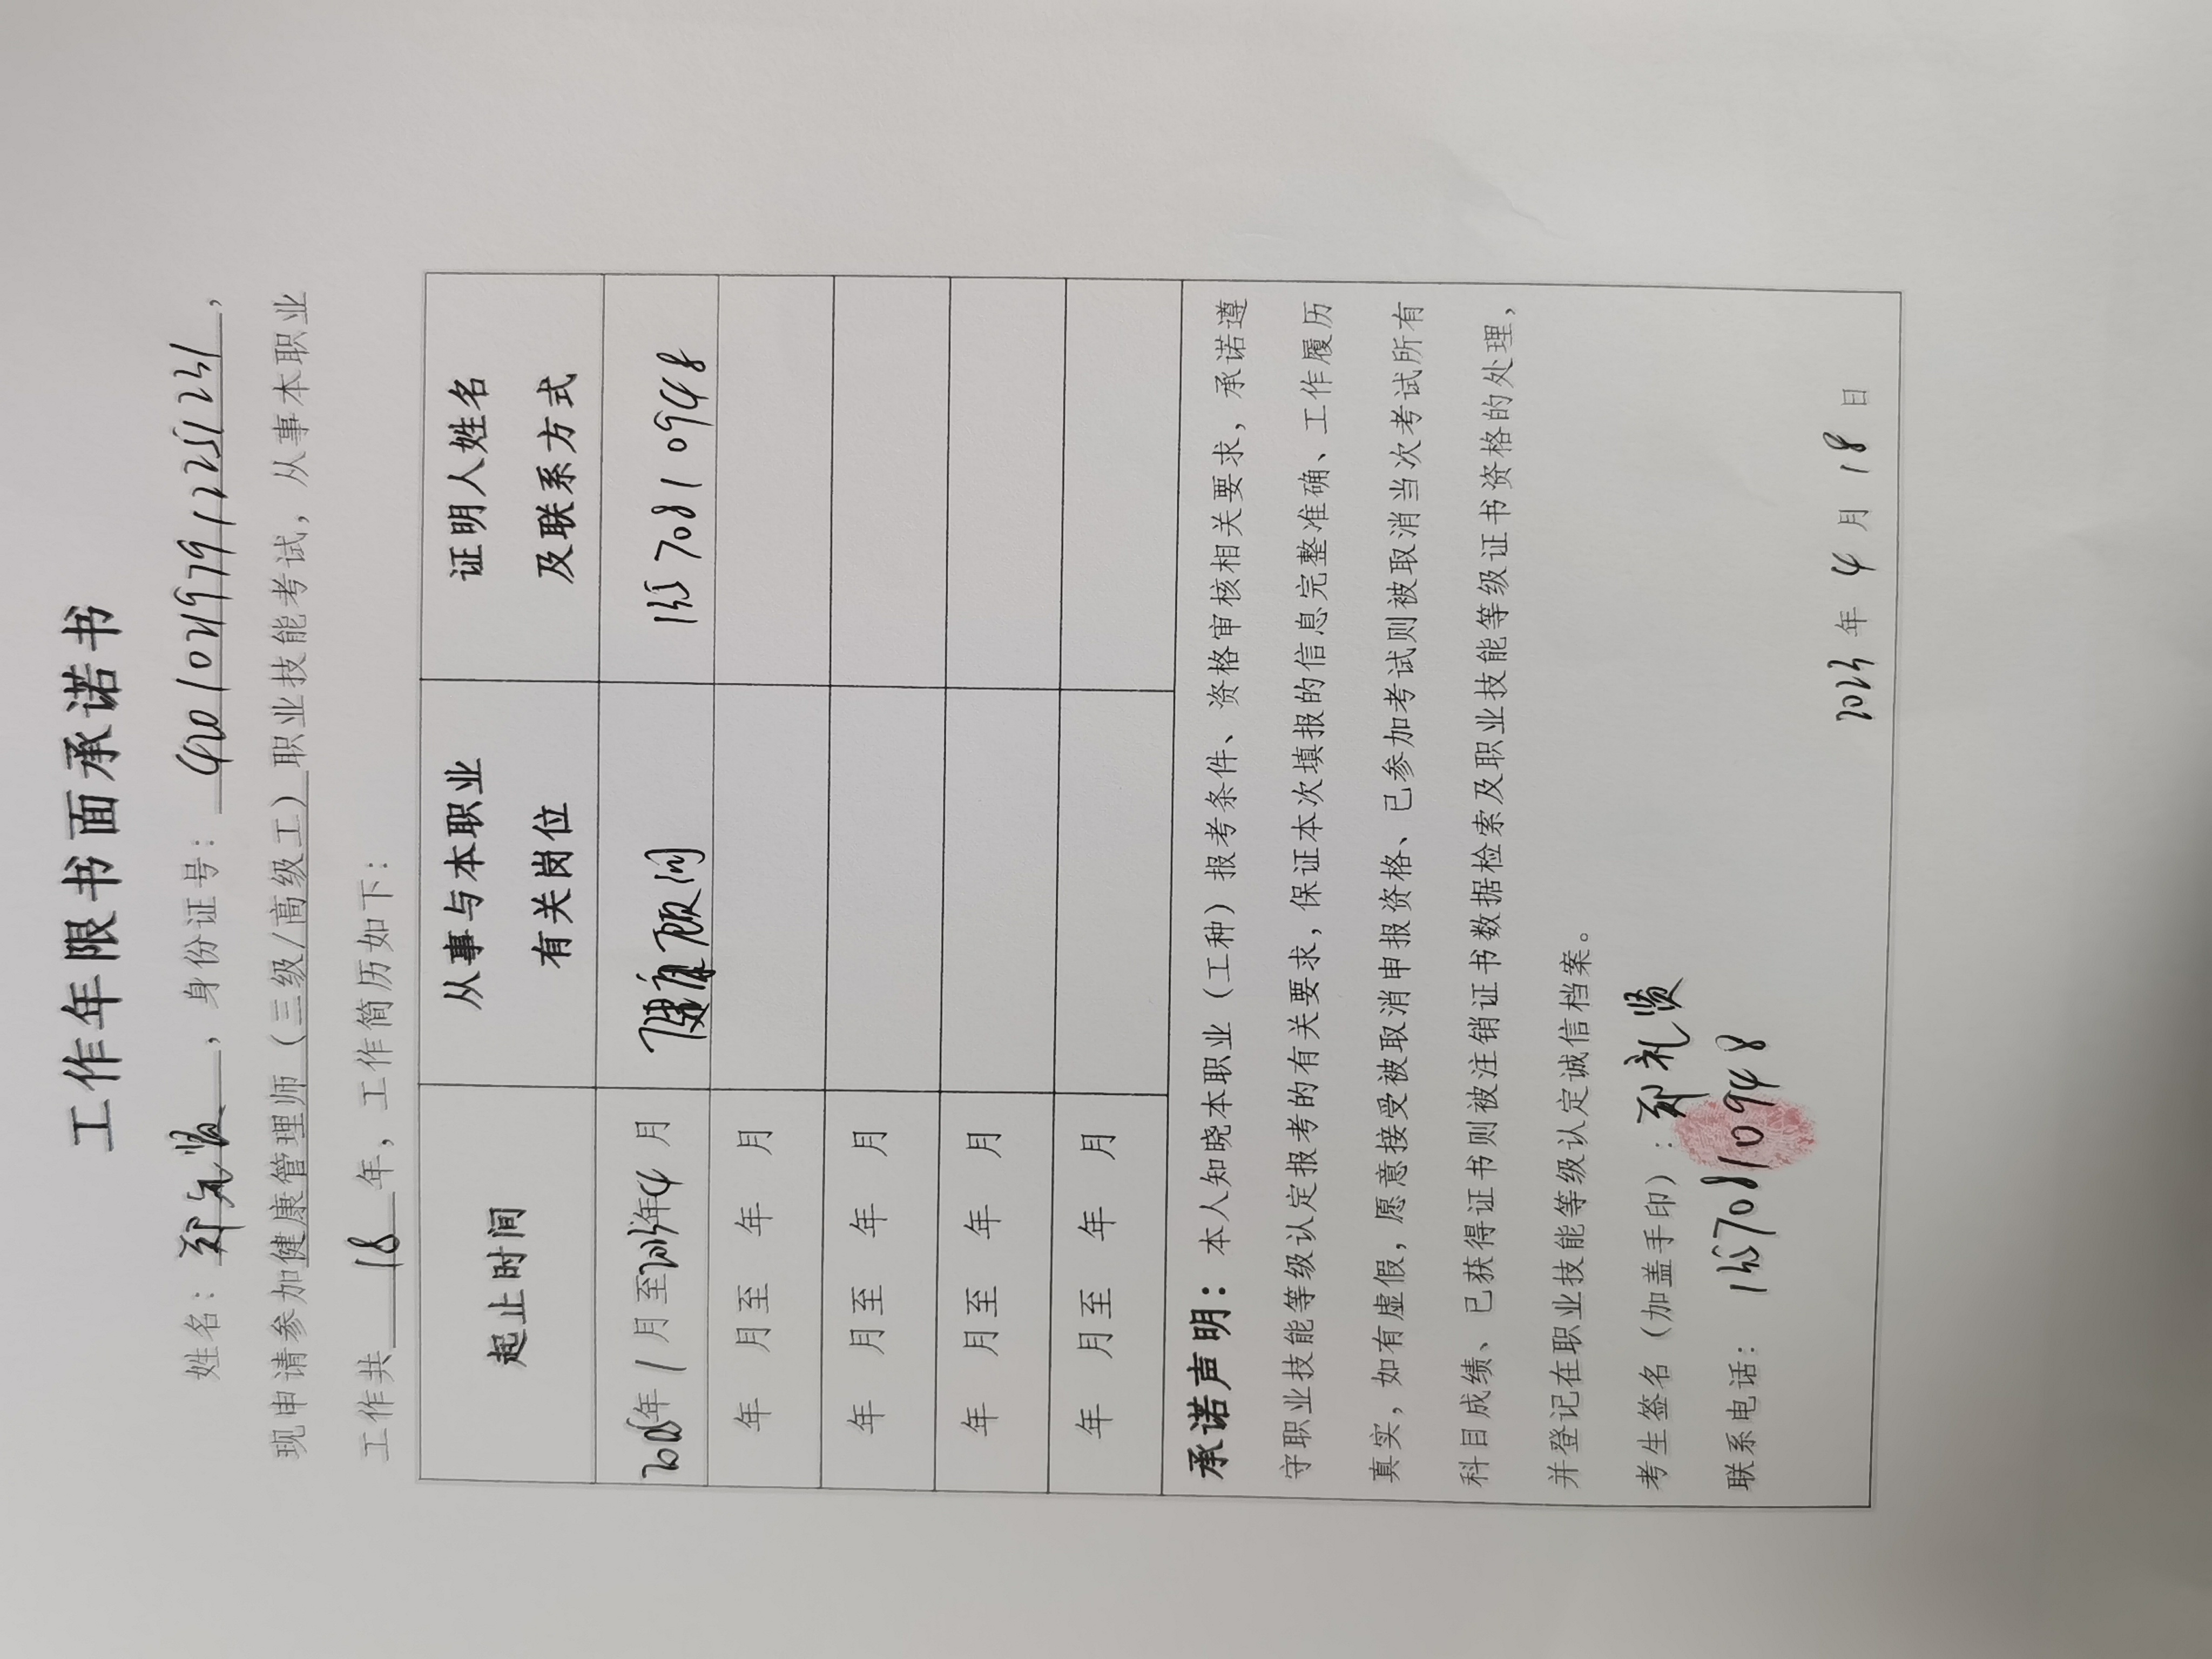 工作年限书面承诺书
姓名：郑礼贤，身份证号：420102197912251231，
现申请参加健康管理师（三级/高级工）职业技能考试，从事本职业
工作共18年，工作简历如下：
起止时间 从事与本职业有关岗位 证明人姓名及联系方式
2005年1月至2023年4月 健康顾问 13570810948
年 月至 年 月
年 月至 年 月
年 月至 年 月
年 月至 年 月
承诺声明：本人知晓本职业（工种）报考条件、资格审核相关要求，承诺遵
守职业技能等级认定报考的有关要求，保证本次填报的信息完整准确、工作履历
真实，如有虚假，愿意接受被取消申报资格、已参加考试则被取消当次考试所有
科目成绩、已获得证书则被注销证书数据检索及职业技能等级证书资格的处理，
并登记在职业技能等级认定诚信档案。
考生签名（加盖手印）：郑礼贤
联系电话：13570810948
2023年4月18日